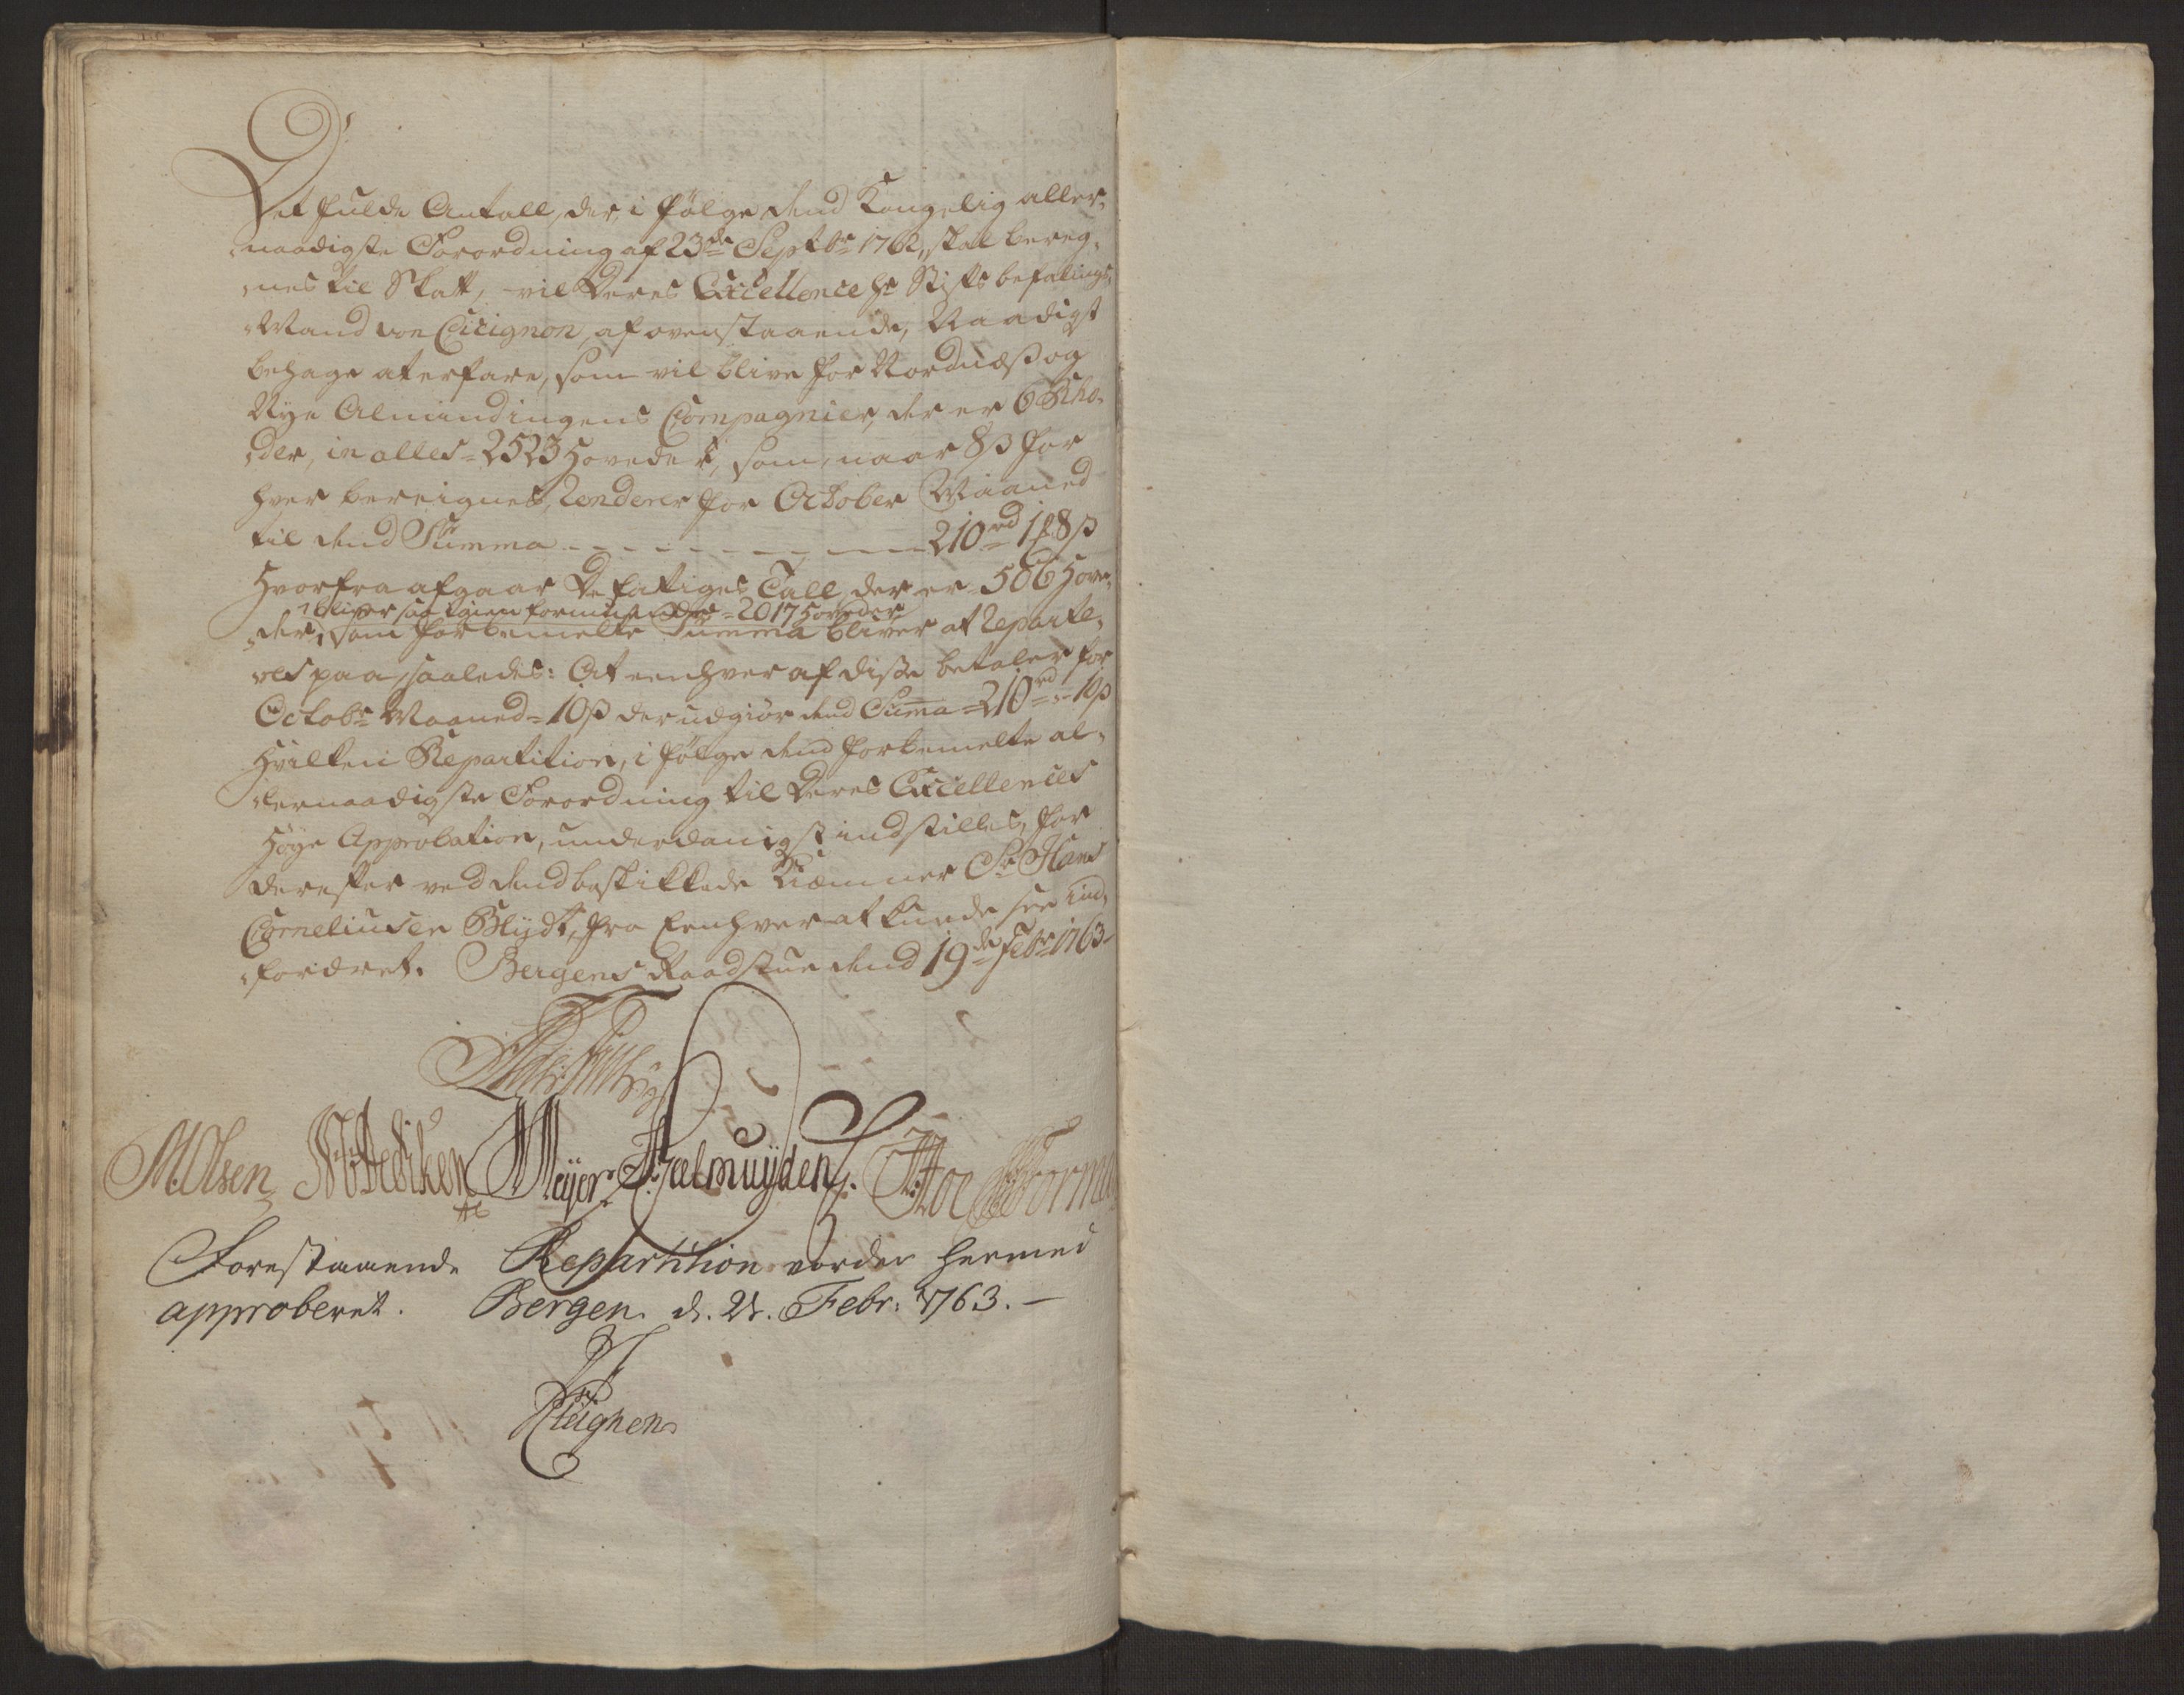 Det fulde Antall, der, i følge dend Kongelig aller,
naadigste Forordning af 23de Septbr 1762, skal bereg,
nes til Skatt, vil Deres Excellence Hr Stifts befalings,
Mand von Cicignon, af ovenstaaende, Naadigst
behage at erfare, som vil blive for Nordnæss og
Nye Almindingens Compagnier, der er 6 Rho,
der, in alles = 2523 Hoveder, som, naar 8 s for
hver bereignes, Renderer for October Maaned
til dend Summa - - - - - - - - 210 rd 1 s 8 s
Hvorfra afgaar De fattiges Tall, der er 506 Hove,
bliver saa igien formuende = 2017 Hoveder
der, som forbemelte Summa bliver at Reparte,
res paa, saaledes: At eenhver af disse betaler for
Octobr Maaned = 10 s der udgiør dend Suma = 210 rd = 10 s
Hvilken Repartition, i følge dend forbemelte al,
lernaadigste Forordning til Deres Excellences
Høye Approbation, underdanigst indstilles, for
derefter ved dend beskikkede Kiæmner Sr Hans
Corneliusen Blydt, fra Eenhver at kunde see ind,
fordret. Bergens Raadstue dend 19de Febr 1763
M. Olsen Meyer Fælmuyden
Forestaaende Repartition vorder hermed
approberet. Bergen d. 21. Febr: 1763. —
Cicignon